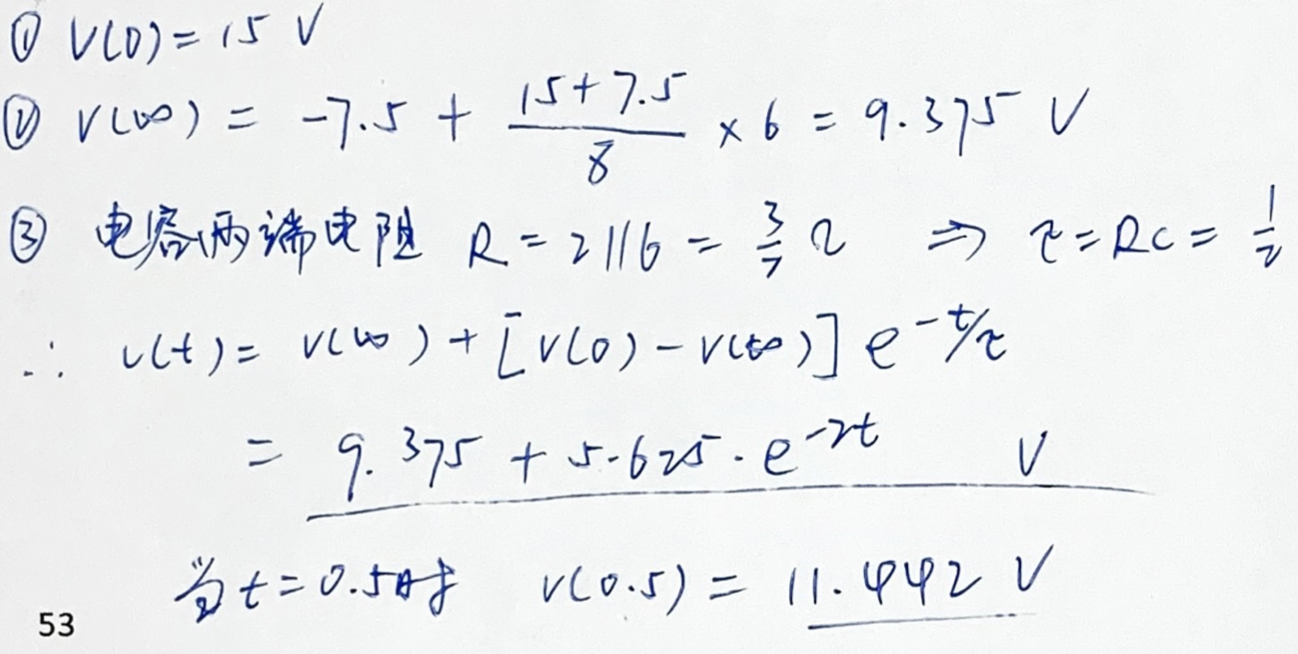 ① V(0) = 15 V
② V(∞) = -7.5 + (15+7.5)/8 × 6 = 9.375 V
③ 电容两端电阻 R = 2||6 = 3/2 Ω ⇒ τ = RC = 1/2
∴ v(t) = v(∞) + [v(0) - v(∞)] e^(-t/τ)
= 9.375 + 5.625 · e^(-2t) V
当 t = 0.5时 v(0.5) = 11.442 V
53